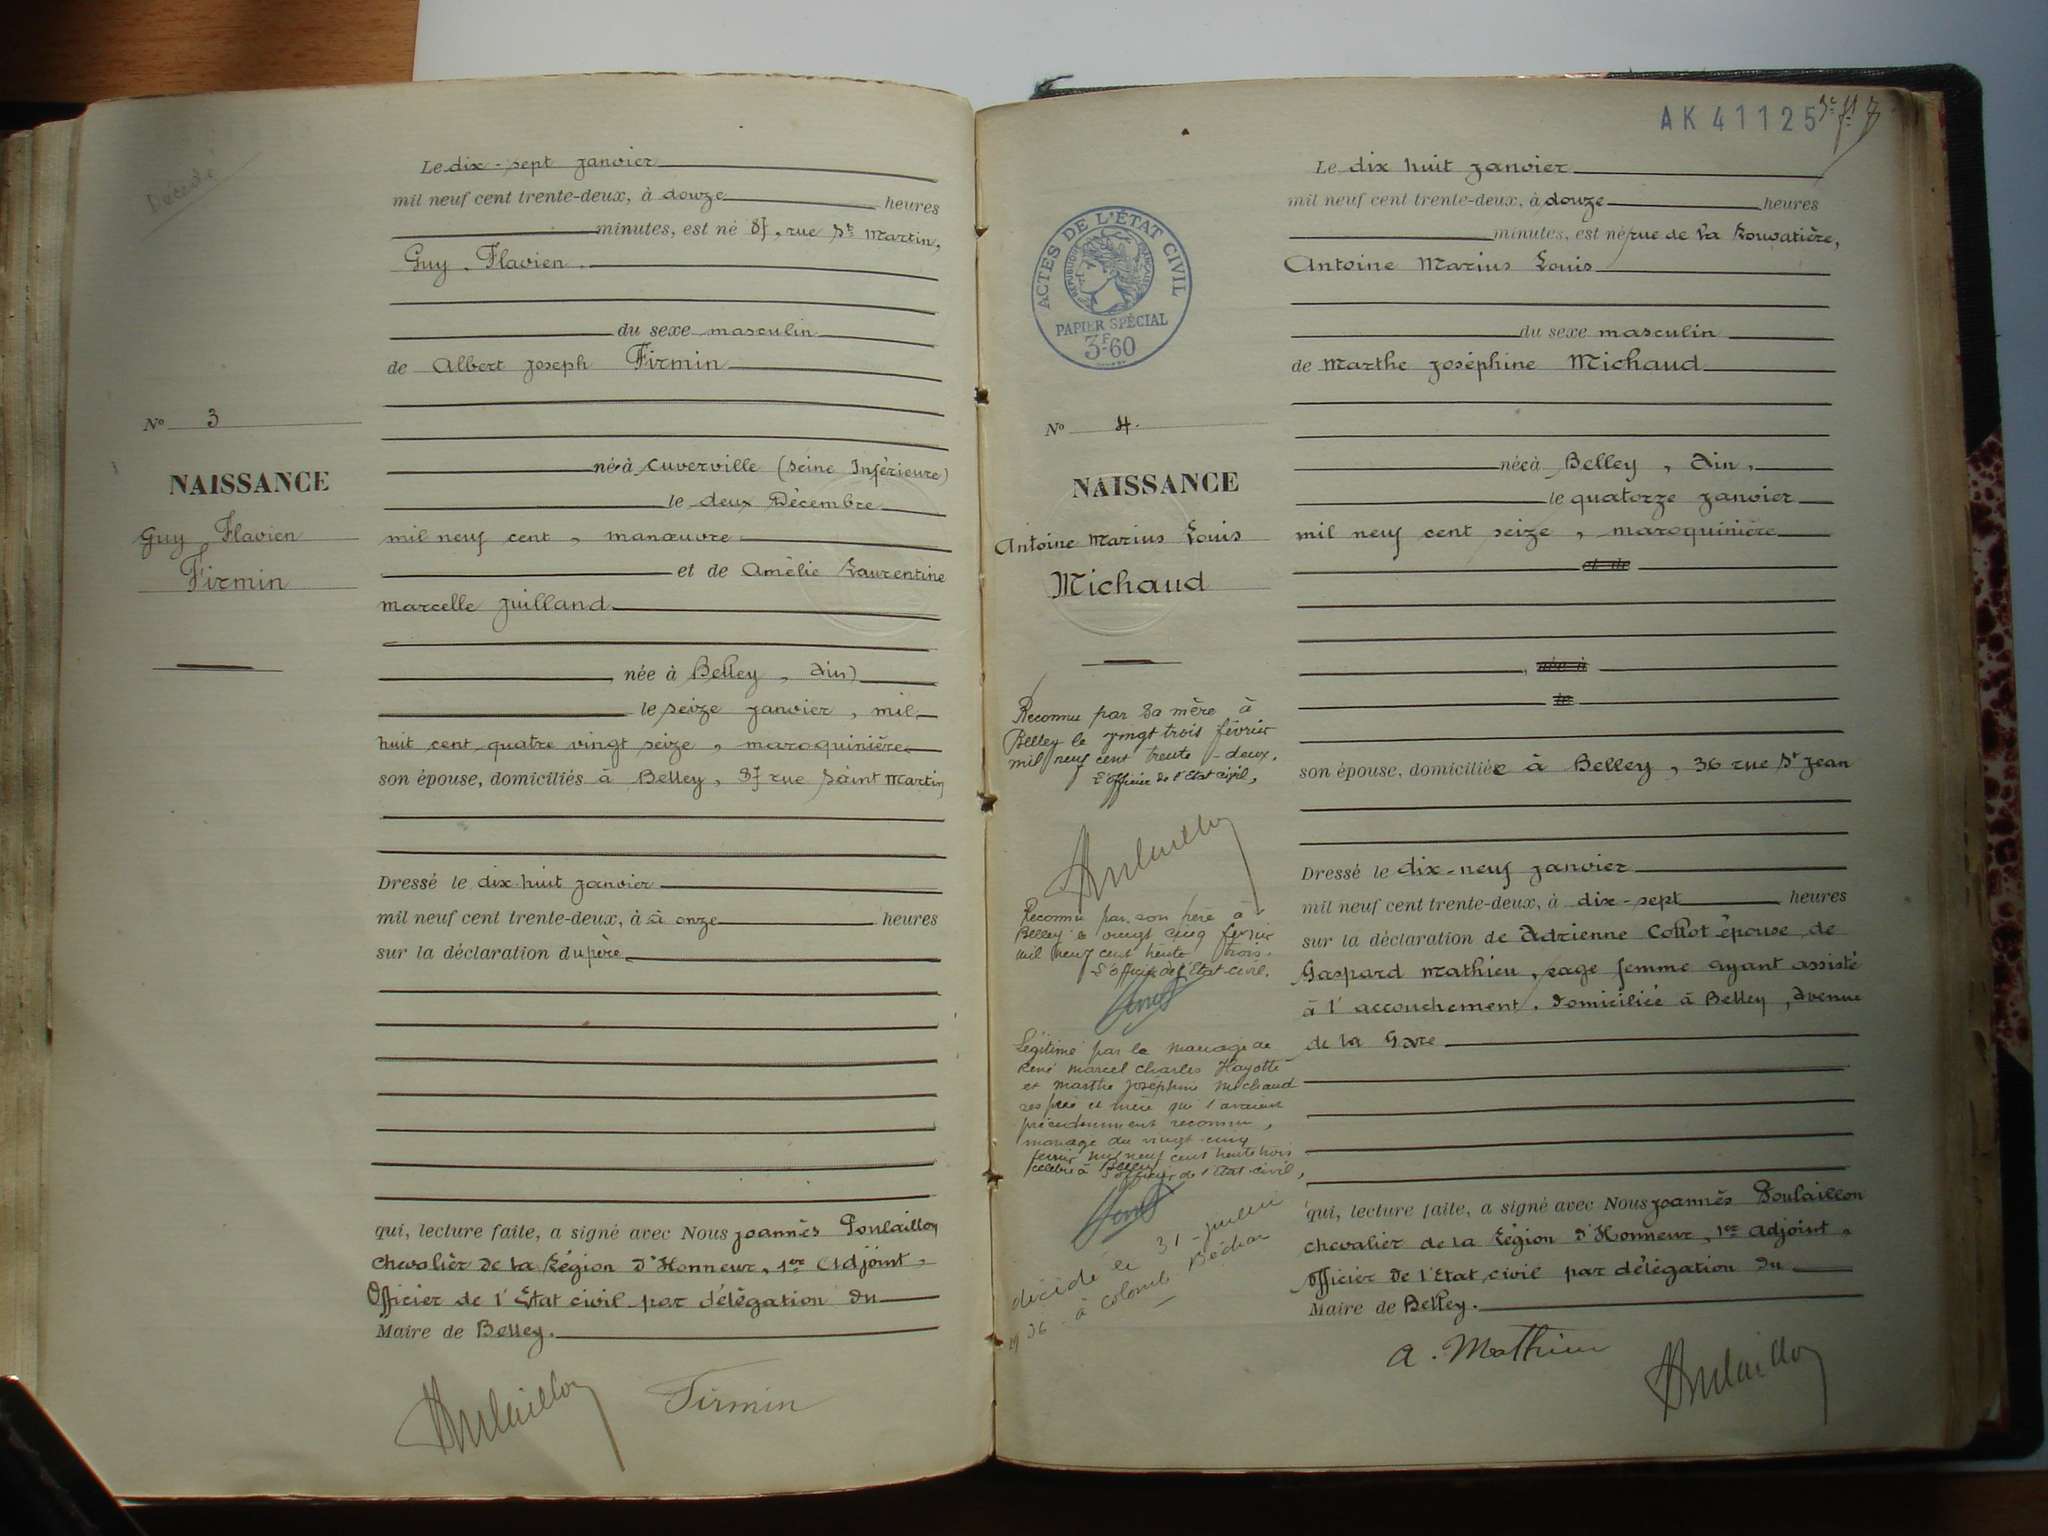 Décédé
Le dix-sept janvier
mil neuf cent trente-deux, à douze heures
minutes, est né 87, rue St Martin,
Guy. Flavien.
du sexe masculin
de Albert Joseph Firmin
né à Cuverville (Seine Inférieure)
le deux Décembre
mil neuf cent, manœuvre
et de Amélie Laurentine
Marcelle Juilland
née à Belley, Ain)
le seize janvier, mil
huit cent quatre vingt seize, maroquinière
son épouse, domiciliés à Belley, 87 rue Saint Martin
Dressé le dix huit janvier
mil neuf cent trente-deux, à à onze heures
sur la déclaration du père
qui, lecture faite, a signé avec Nous Joannès Poulaillon
chevalier de la Légion d'Honneur, 1er Adjoint,
Officier de l'Etat civil par délégation du
Maire de Belley.
Poulaillon Firmin
No 3
NAISSANCE
Guy Flavien
Firmin
AK 41125
Le dix huit janvier
mil neuf cent trente-deux, à douze heures
minutes, est né rue de la
Antoine Marius Louis
du sexe masculin
de Marthe Joséphine Michaud
née à Belley, Ain,
le quatorze janvier
mil neuf cent seize, maroquinière
et de
née à
le
son épouse, domiciliée à Belley, 36 rue St Jean
Dressé le dix-neuf janvier
mil neuf cent trente-deux, à dix-sept heures
sur la déclaration de Adrienne Collot épouse de
Gaspard Mathieu, sage femme ayant assisté
à l'accouchement, domiciliée à Belley, Avenue
de la Gare
qui, lecture faite, a signé avec Nous Joannès Poulaillon
chevalier de la Légion d'Honneur, 1er Adjoint,
Officier de l'Etat civil par délégation du
Maire de Belley.
A. Mathieu Poulaillon
ACTES DE L'ÉTAT CIVIL
RÉPUBLIQUE FRANÇAISE
PAPIER SPÉCIAL
3F60
No 4.
NAISSANCE
Antoine Marius Louis
Michaud
Reconnu par sa mère à
Belley le vingt trois février
mil neuf cent trente-deux.
L'officier de l'Etat civil,
Poulaillon
Reconnu par son père à
Belley le vingt cinq février
mil neuf cent trente trois.
L'officier de l'Etat-civil.
Légitimé par le mariage de
René Marcel Charles Hayotte
et Marthe Joséphine Michaud
ses père et mère qui l'avaient
précédemment reconnu,
mariage du vingt-cinq
février mil neuf cent trente trois
célébré à Belley
L'officier de l'Etat-civil,
décédé le 31 juillet
1956 à Colomb Béchar